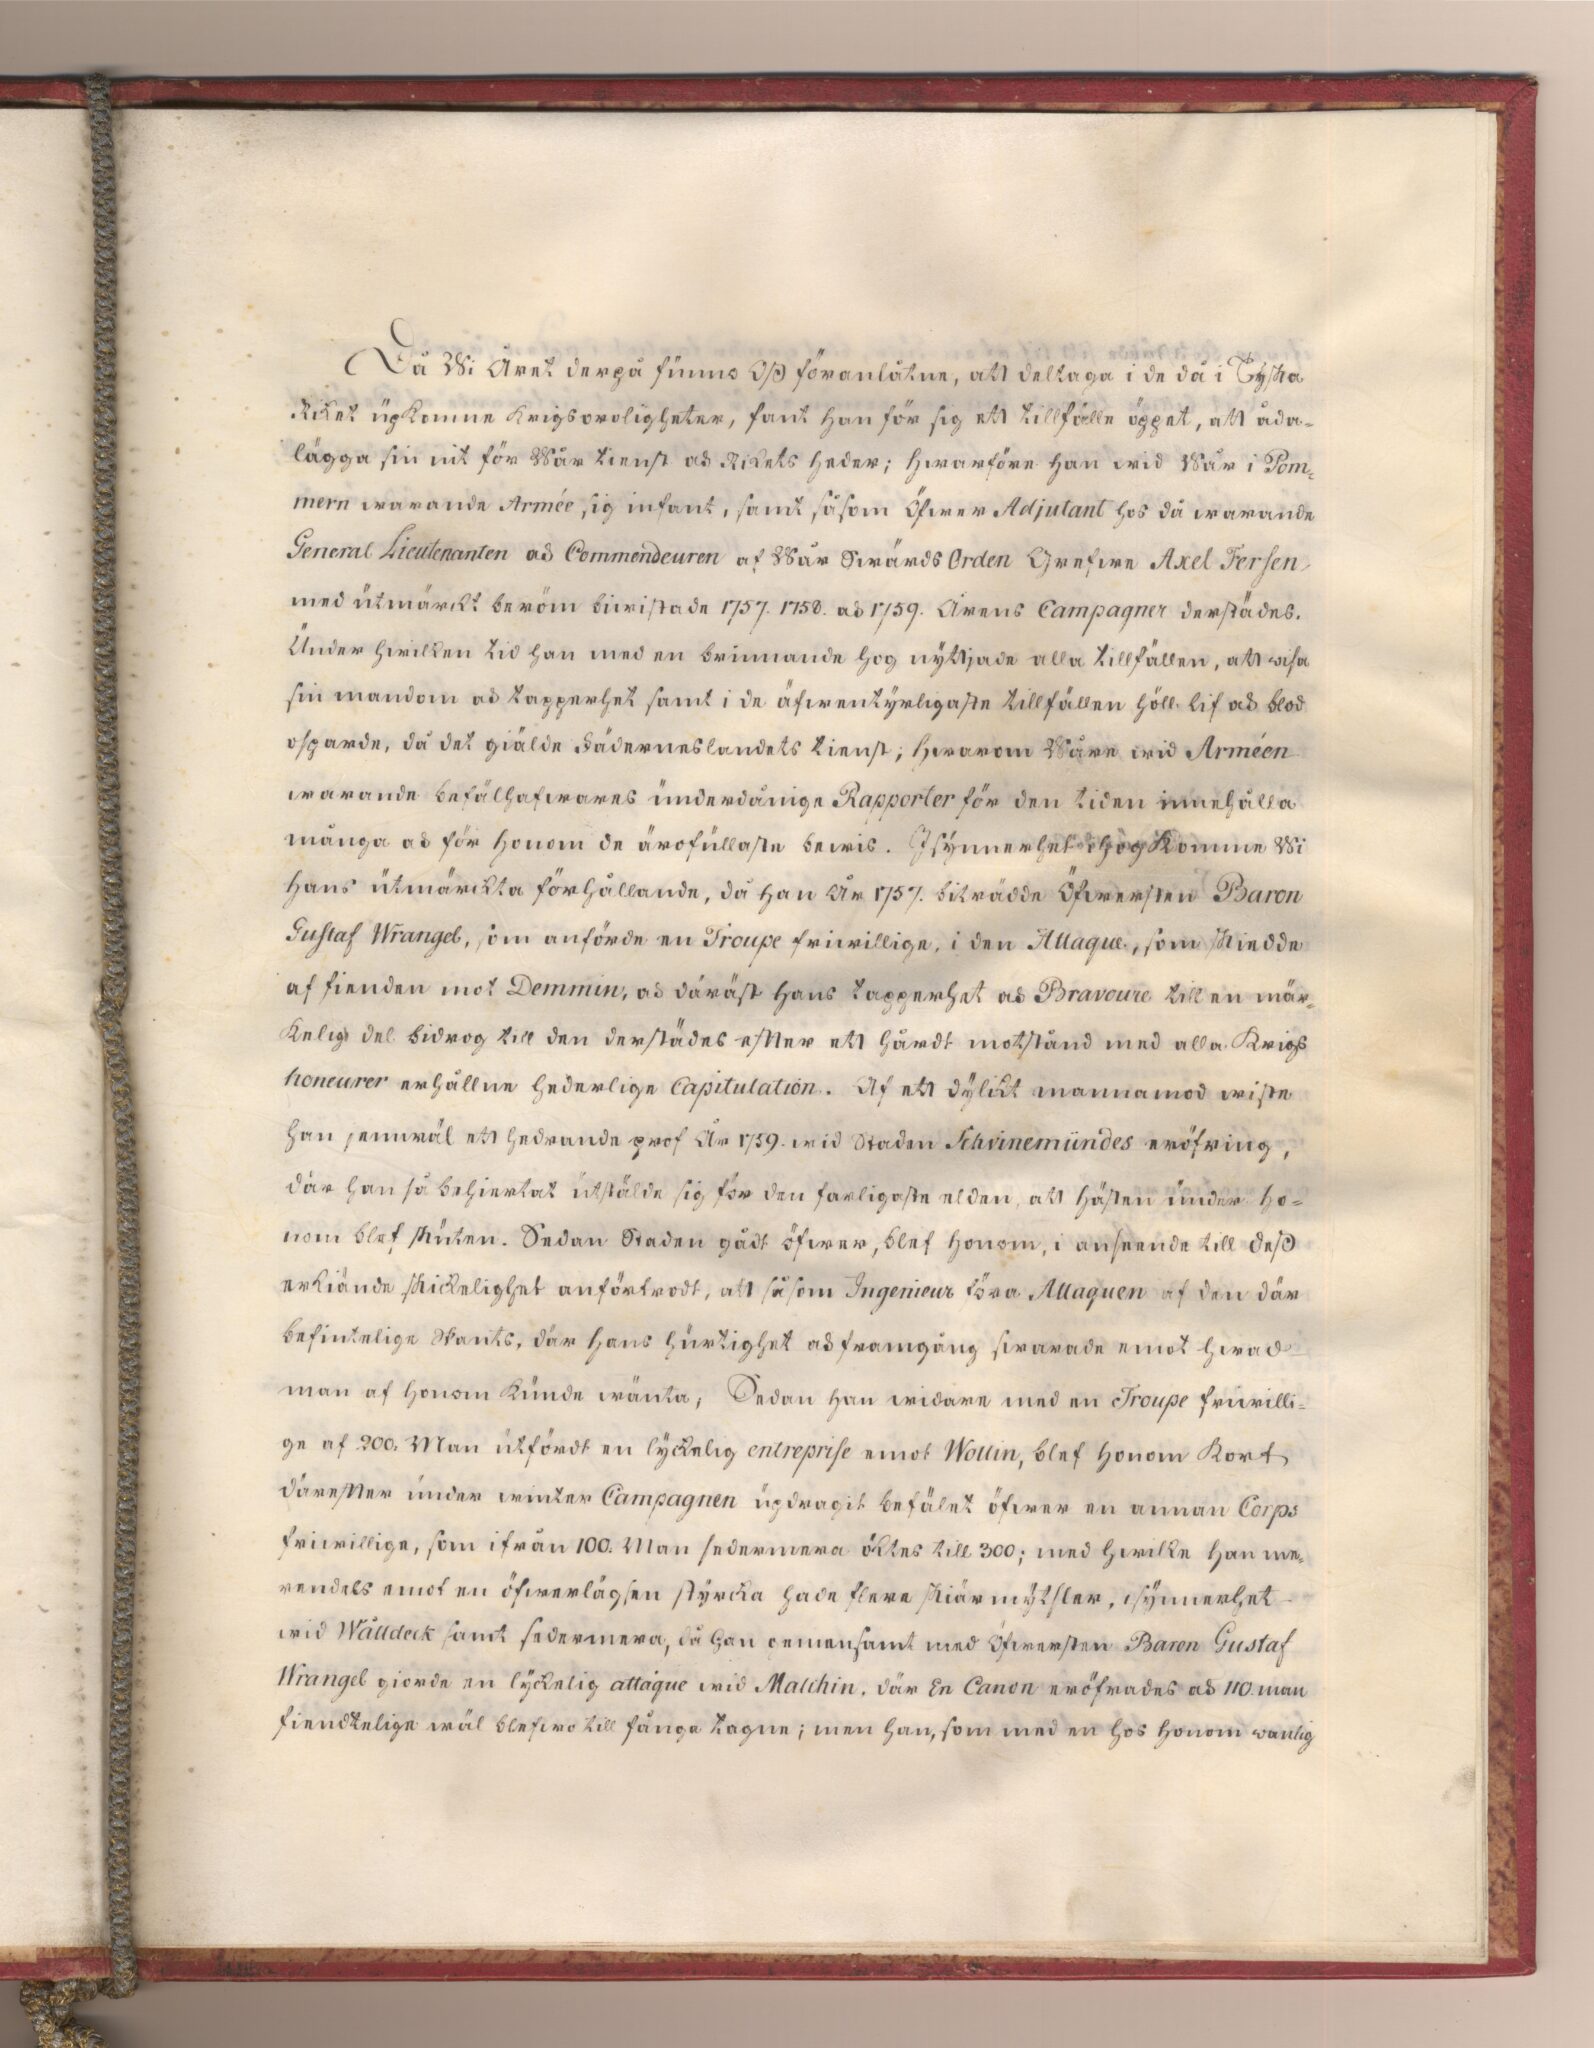 Då Wi Året derpå funno Oß föranlåtne, att deltaga i de då i Tyska
Riket upkomne Krigsoroligheter, fant han för sig ett tillfälle öppet, att åda-
lägga sin nit för Wår tienst och Rikets heder; hwarföre han wid Wår i Pom-
mern warande Armée sig infant, samt såsom Öfwer Adjutant hos då warande
General Lieutenanten och Commendeuren af Wår Swärds Orden Grefwe Axel Fersen
med utmärckt beröm biwistade 1757. 1758. och 1759. Årens Campagner derstädes.
Under hwilken tid han med en brinnande hog nyttjade alla tillfällen, att wisa
sin mandom och tapperhet samt i de äfwentyrligaste tillfällen höll lif och blod
osparde, då det giälde Fäderneslandets tienst; hwarom Wåre wid Arméen
warande befälhafwares underdånige Rapporter för den tiden innehålla
många och för honom de ärofullaste bewis. Isynnerhet ihogkomme Wi
hans utmärckta förhållande, då han År 1757. biträdde Öfwersten Baron
Gustaf Wrangel, som anförde en Troupe friwillige, i den Attaque, som skiedde
af fienden mot Demmin, och däräst hans tapperhet och Bravoure till en mär-
kelig del bidrog till den derstädes efter ett hårdt motstånd med alla Krigs
honeurer erhållne hederlige Capitulation. Af ett dylikt mannamod wiste
han jemwäl ett hedrande prof År 1759. wid Staden Schvinemündes eröfring,
där han så behiertat utstälde sig för den farligaste elden, att hästen under ho-
nom blef skuten. Sedan Staden gådt öfwer, blef honom, i anseende till deß
erkiände skickelighet anförtrodt, att såsom Ingenieur föra Attaquen af den där
befintelige Skants, där hans hurtighet och framgång swarade emot hwad
man af honom kunde wänta; Sedan han widare med en Troupe friwilli-
ge af 200. Man utfördt en lyckelig entreprise emot Wollin, blef honom kort
därefter under winter Campagnen updragit befälet öfwer en annan Corps
friwillige, som ifrån 100. Man sedermera öktes till 300; med hwilke han me-
rendels emot en öfwerlägsen styrcka hade flere skiärmytsler, isynnerhet
wid Wålldeck samt sedermera, då han gemensamt med Öfwersten Baron Gustaf
Wrangel giorde en lyckelig attaque wid Malchin, där En Canon eröfrades och 110 man
fiendtelige wäl blefwo till fånga tagne; men han, som med en hos honom wanlig